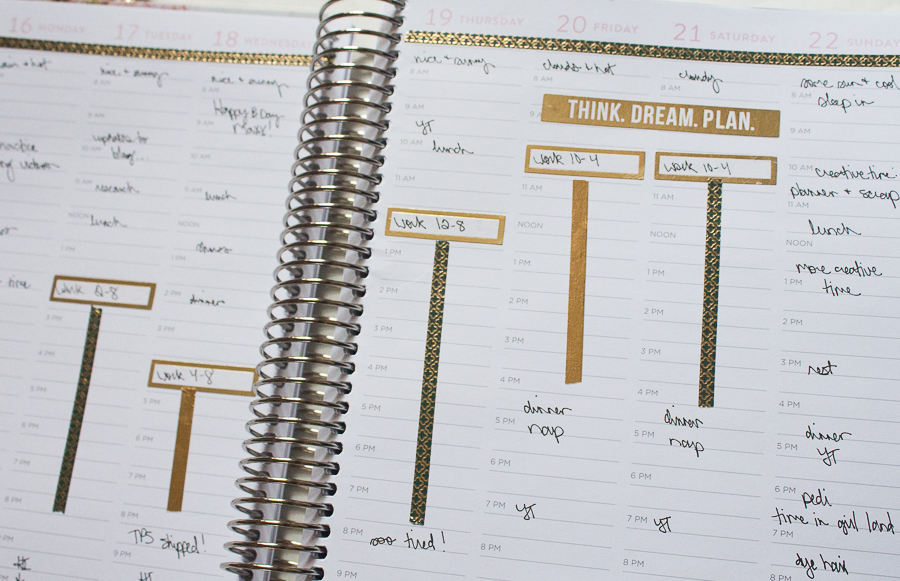 16 MONDAY
17 TUESDAY
18 WEDNESDAY
8 AM
nice + sunny
9 AM
updates to
10 AM
blog...
research
NOON
lunch
1 PM
work 12-8
3 PM
4 PM
5 PM
6 PM
7 PM
8 PM
nice + sunny
Happy B Day
9 AM
Mark!
10 AM
lunch
NOON
2 PM
dinner
3 PM
work 4-8
5 PM
6 PM
7 PM
TPS shipped!
9 PM
19 THURSDAY
nice + sunny
8 AM
9 AM
YT
10 AM
lunch
11 AM
work 12-8
1 PM
2 PM
3 PM
4 PM
5 PM
6 PM
7 PM
8 PM
sooo tired!
9 PM
20 FRIDAY
clouds + hot
8 AM
THINK. DREAM. PLAN.
work 10-4
11 AM
NOON
1 PM
2 PM
3 PM
4 PM
dinner
5 PM
nap
6 PM
7 PM
YT
8 PM
21 SATURDAY
cloudy
8 AM
work 10-4
11 AM
NOON
1 PM
2 PM
3 PM
4 PM
dinner
5 PM
nap
6 PM
7 PM
YT
8 PM
22 SUNDAY
some sun + cool
8 AM
sleep in
9 AM
10 AM
creative time:
planner + scrap
11 AM
lunch
NOON
more creative
1 PM
time
2 PM
3 PM
rest
4 PM
dinner
5 PM
YT
6 PM
pedi
time in girl land
7 PM
dye hair
8 PM